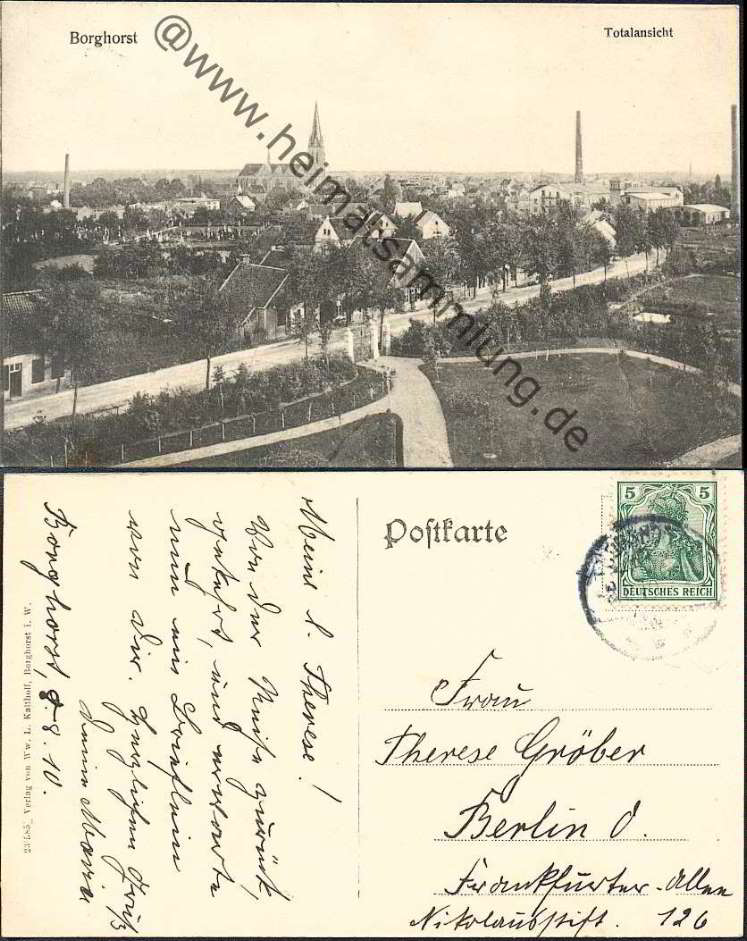 Borghorst
Totalansicht
@www.heimatsammlung.de
Postkarte
5 5
DEUTSCHES REICH
Meine l. Therese!
Von der Reise zurück,
gekehrt, und erwarte
nun ein Brieflein
von dir. Herzlichen Gruß
deine Maria
Borghorst, 8.8.10.
Verlag von Ww. L. Kalthoff, Borghorst i. W.
Frau
Therese Gröber
Berlin O.
Frankfurter-Allee
Nikolausstift. 126